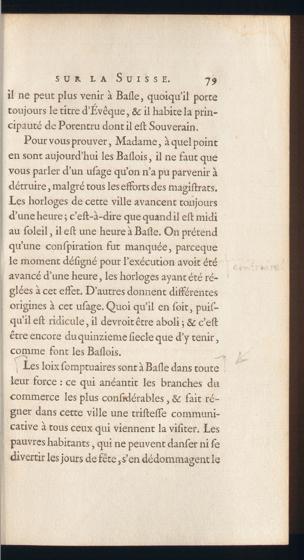 SUR LA SUISSE. 79
il ne peut plus venir à Basle, quoiqu'il porte
toujours le titre d'Évêque, & il habite la prin-
cipauté de Porentru dont il est Souverain.
Pour vous prouver, Madame, à quel point
en sont aujourd'hui les Baslois, il ne faut que
vous parler d'un usage qu'on n'a pu parvenir à
détruire, malgré tous les efforts des magistrats.
Les horloges de cette ville avancent toujours
d'une heure; c'est-à-dire que quand il est midi
au soleil, il est une heure à Basle. On prétend
qu'une conspiration fut manquée, parceque
le moment désigné pour l'exécution avoit été
avancé d'une heure, les horloges ayant été ré-
glées à cet effet. D'autres donnent différentes
origines à cet usage. Quoi qu'il en soit, puis-
qu'il est ridicule, il devroit être aboli; & c'est
être encore du quinzieme siecle que d'y tenir,
comme font les Baslois.
Les loix somptuaires sont à Basle dans toute
leur force : ce qui anéantit les branches du
commerce les plus considérables, & fait ré-
gner dans cette ville une tristesse communi-
cative à tous ceux qui viennent la visiter. Les
pauvres habitants, qui ne peuvent danser ni se
divertir les jours de fête, s'en dédommagent le